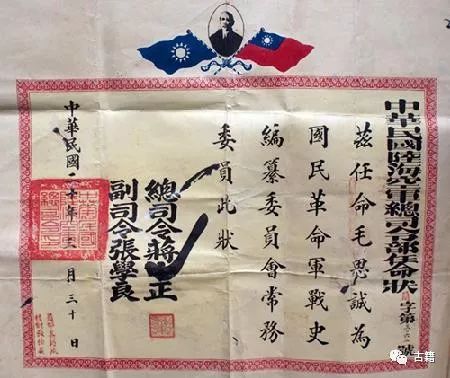 中華民國陸海空軍總司令部任命狀
字第 號
茲任命毛思誠為
國民革命軍戰史
編纂委員會常務
委員此狀
總司令蔣 正
副司令張學良
中華民國二十年 月三十日
古籍